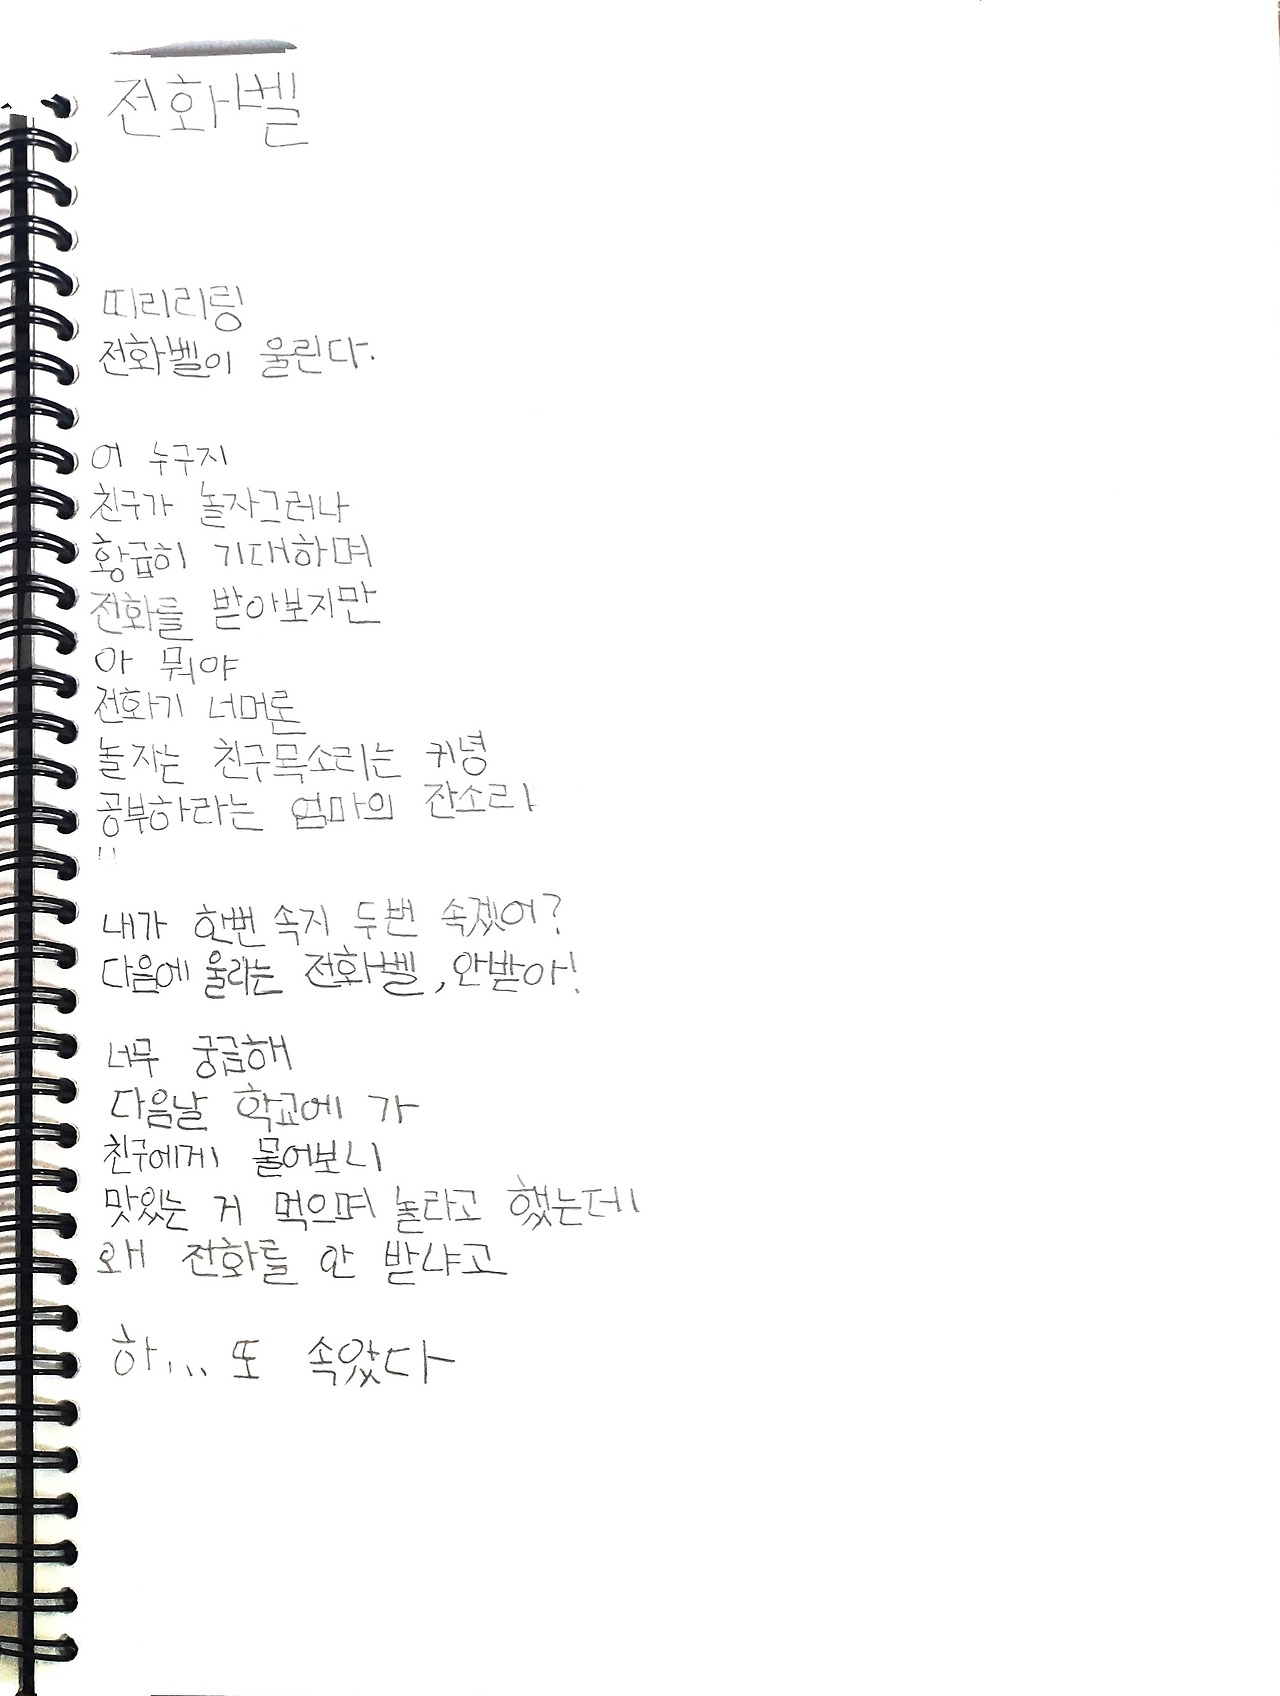 전화벨
띠리리링
전화벨이 울린다.
어 누구지
친구가 놀자그러나
황급히 기대하며
전화를 받아보지만
아 뭐야
전화기 너머론
놀자는 친구목소리는 커녕
공부하라는 엄마의 잔소리
!!
내가 한번 속지 두번 속겠어?
다음에 울리는 전화벨, 안받아!
너무 궁금해
다음날 학교에 가
친구에게 물어보니
맛있는 거 먹으며 놀라고 했는데
왜 전화를 안 받냐고
하... 또 속았다